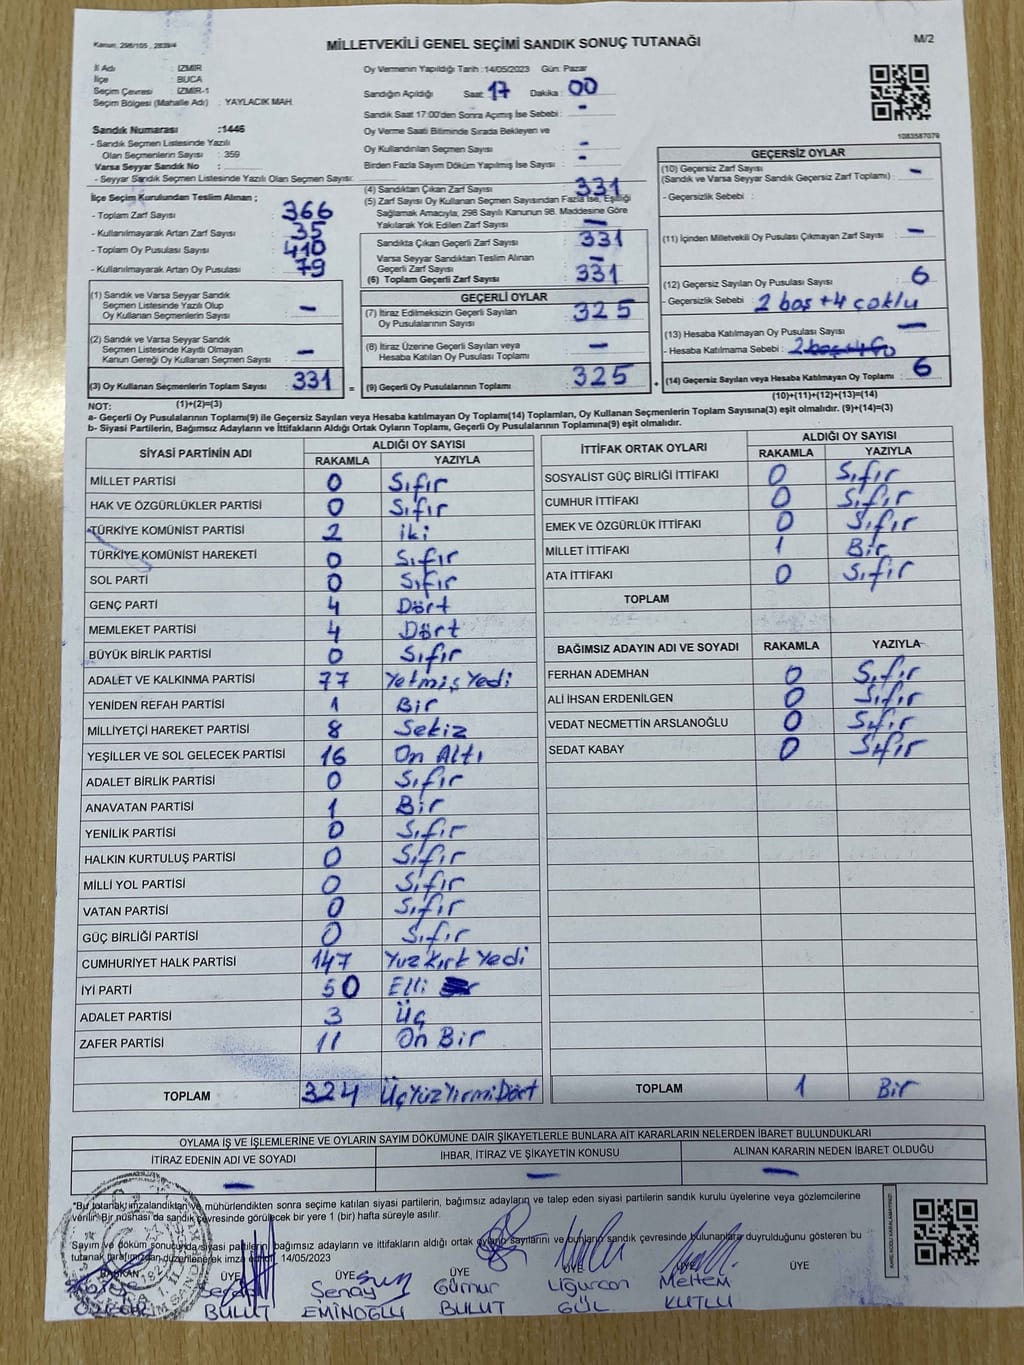 Kanun, 298/105 , 2839/4
MİLLETVEKİLİ GENEL SEÇİMİ SANDIK SONUÇ TUTANAĞI
M/2
İl Adı : İZMİR
İlçe : BUCA
Seçim Çevresi : İZMİR-1
Seçim Bölgesi (Mahalle Adı) : YAYLACIK MAH.
Sandık Numarası :1446
- Sandık Seçmen Listesinde Yazılı
Olan Seçmenlerin Sayısı : 359
Varsa Seyyar Sandık No :
- Seyyar Sandık Seçmen Listesinde Yazılı Olan Seçmen Sayısı:
Oy Vermenin Yapıldığı Tarih :14/05/2023 Gün: Pazar
Sandığın Açıldığı Saat: 17 Dakika: 00
Sandık Saat 17:00'den Sonra Açımış İse Sebebi : -
Oy Verme Saati Bitiminde Sırada Bekleyen ve
Oy Kullandırılan Seçmen Sayısı : -
Birden Fazla Sayım Döküm Yapılmış İse Sayısı : -
1083587079
İlçe Seçim Kurulundan Teslim Alınan ;
- Toplam Zarf Sayısı : 366
- Kullanılmayarak Artan Zarf Sayısı : 35
- Toplam Oy Pusulası Sayısı : 410
- Kullanılmayarak Artan Oy Pusulası : 79
(1) Sandık ve Varsa Seyyar Sandık
Seçmen Listesinde Yazılı Olup
Oy Kullanan Seçmenlerin Sayısı : -
(2) Sandık ve Varsa Seyyar Sandık
Seçmen Listesinde Kayıtlı Olmayan
Kanun Gereği Oy Kullanan Seçmen Sayısı : -
(3) Oy Kullanan Seçmenlerin Toplam Sayısı : 331
(1)+(2)=(3)
(4) Sandıktan Çıkan Zarf Sayısı : 331
(5) Zarf Sayısı Oy Kullanan Seçmen Sayısından Fazla İse, Eşitliği
Sağlamak Amacıyla, 298 Sayılı Kanunun 98. Maddesine Göre
Yakılarak Yok Edilen Zarf Sayısı : -
Sandıkta Çıkan Geçerli Zarf Sayısı : 331
Varsa Seyyar Sandıktan Teslim Alınan
Geçerli Zarf Sayısı : -
(6) Toplam Geçerli Zarf Sayısı : 331
GEÇERLİ OYLAR
(7) İtiraz Edilmeksizin Geçerli Sayılan
Oy Pusulalarının Sayısı : 325
(8) İtiraz Üzerine Geçerli Sayılan veya
Hesaba Katılan Oy Pusulası Toplamı : -
= (9) Geçerli Oy Pusulalarının Toplamı : 325
GEÇERSİZ OYLAR
(10) Geçersiz Zarf Sayısı
(Sandık ve Varsa Seyyar Sandık Geçersiz Zarf Toplamı) : -
- Geçersizlik Sebebi :
(11) İçinden Milletvekili Oy Pusulası Çıkmayan Zarf Sayısı : -
(12) Geçersiz Sayılan Oy Pusulası Sayısı : 6
- Geçersizlik Sebebi : 2 boş +4 çoklu
(13) Hesaba Katılmayan Oy Pusulası Sayısı : -
- Hesaba Katılmama Sebebi :
+ (14) Geçersiz Sayılan veya Hesaba Katılmayan Oy Toplamı : 6
(10)+(11)+(12)+(13)=(14)
NOT:
a- Geçerli Oy Pusulalarının Toplamı(9) ile Geçersiz Sayılan veya Hesaba katılmayan Oy Toplamı(14) Toplamları, Oy Kullanan Seçmenlerin Toplam Sayısına(3) eşit olmalıdır. (9)+(14)=(3)
b- Siyasi Partilerin, Bağımsız Adayların ve İttifakların Aldığı Ortak Oyların Toplamı, Geçerli Oy Pusulalarının Toplamına(9) eşit olmalıdır.
SİYASİ PARTİNİN ADI ALDIĞI OY SAYISI
RAKAMLA YAZIYLA
MİLLET PARTİSİ 0 Sıfır
HAK VE ÖZGÜRLÜKLER PARTİSİ 0 Sıfır
TÜRKİYE KOMÜNİST PARTİSİ 2 iki
TÜRKİYE KOMÜNİST HAREKETİ 0 Sıfır
SOL PARTİ 0 Sıfır
GENÇ PARTİ 4 Dört
MEMLEKET PARTİSİ 4 Dört
BÜYÜK BİRLİK PARTİSİ 0 Sıfır
ADALET VE KALKINMA PARTİSİ 77 Yetmiş Yedi
YENİDEN REFAH PARTİSİ 1 Bir
MİLLİYETÇİ HAREKET PARTİSİ 8 Sekiz
YEŞİLLER VE SOL GELECEK PARTİSİ 16 On Altı
ADALET BİRLİK PARTİSİ 0 Sıfır
ANAVATAN PARTİSİ 1 Bir
YENİLİK PARTİSİ 0 Sıfır
HALKIN KURTULUŞ PARTİSİ 0 Sıfır
MİLLİ YOL PARTİSİ 0 Sıfır
VATAN PARTİSİ 0 Sıfır
GÜÇ BİRLİĞİ PARTİSİ 0 Sıfır
CUMHURİYET HALK PARTİSİ 147 Yuz Kırk Yedi
İYİ PARTİ 50 Elli
ADALET PARTİSİ 3 Üç
ZAFER PARTİSİ 11 On Bir
TOPLAM 324 ÜçYüzYirmiDört
İTTİFAK ORTAK OYLARI ALDIĞI OY SAYISI
RAKAMLA YAZIYLA
SOSYALİST GÜÇ BİRLİĞİ İTTİFAKI 0 Sıfır
CUMHUR İTTİFAKI 0 Sıfır
EMEK VE ÖZGÜRLÜK İTTİFAKI 0 Sıfır
MİLLET İTTİFAKI 1 Bir
ATA İTTİFAKI 0 Sıfır
TOPLAM
BAĞIMSIZ ADAYIN ADI VE SOYADI RAKAMLA YAZIYLA
FERHAN ADEMHAN 0 Sıfır
ALİ İHSAN ERDENİLGEN 0 Sıfır
VEDAT NECMETTİN ARSLANOĞLU 0 Sıfır
SEDAT KABAY 0 Sıfır
TOPLAM 1 Bir
OYLAMA İŞ VE İŞLEMLERİNE VE OYLARIN SAYIM DÖKÜMÜNE DAİR ŞİKAYETLERLE BUNLARA AİT KARARLARIN NELERDEN İBARET BULUNDUKLARI
İTİRAZ EDENİN ADI VE SOYADI İHBAR, İTİRAZ VE ŞİKAYETİN KONUSU ALINAN KARARIN NEDEN İBARET OLDUĞU
- - -
"Bu tutanak, imzalandıktan ve mühürlendikten sonra seçime katılan siyasi partilerin, bağımsız adayların ve talep eden siyasi partilerin sandık kurulu üyelerine veya gözlemcilerine
verilir. Bir nüshası da sandık çevresinde görülecek bir yere 1 (bir) hafta süreyle asılır.
Sayım ve döküm sonucunda siyasi partilerin, bağımsız adayların ve ittifakların aldığı ortak oyların sayılarını ve bunların sandık çevresinde bulunanlara duyrulduğunu gösteren bu
tutanak tarafımızdan düzenlenerek imza edildi. 14/05/2023
BAŞKAN ÜYE ÜYE ÜYE ÜYE ÜYE ÜYE
Şenay Meltem
BULUT EMİNOĞLU BULUT GÜL KUTLU